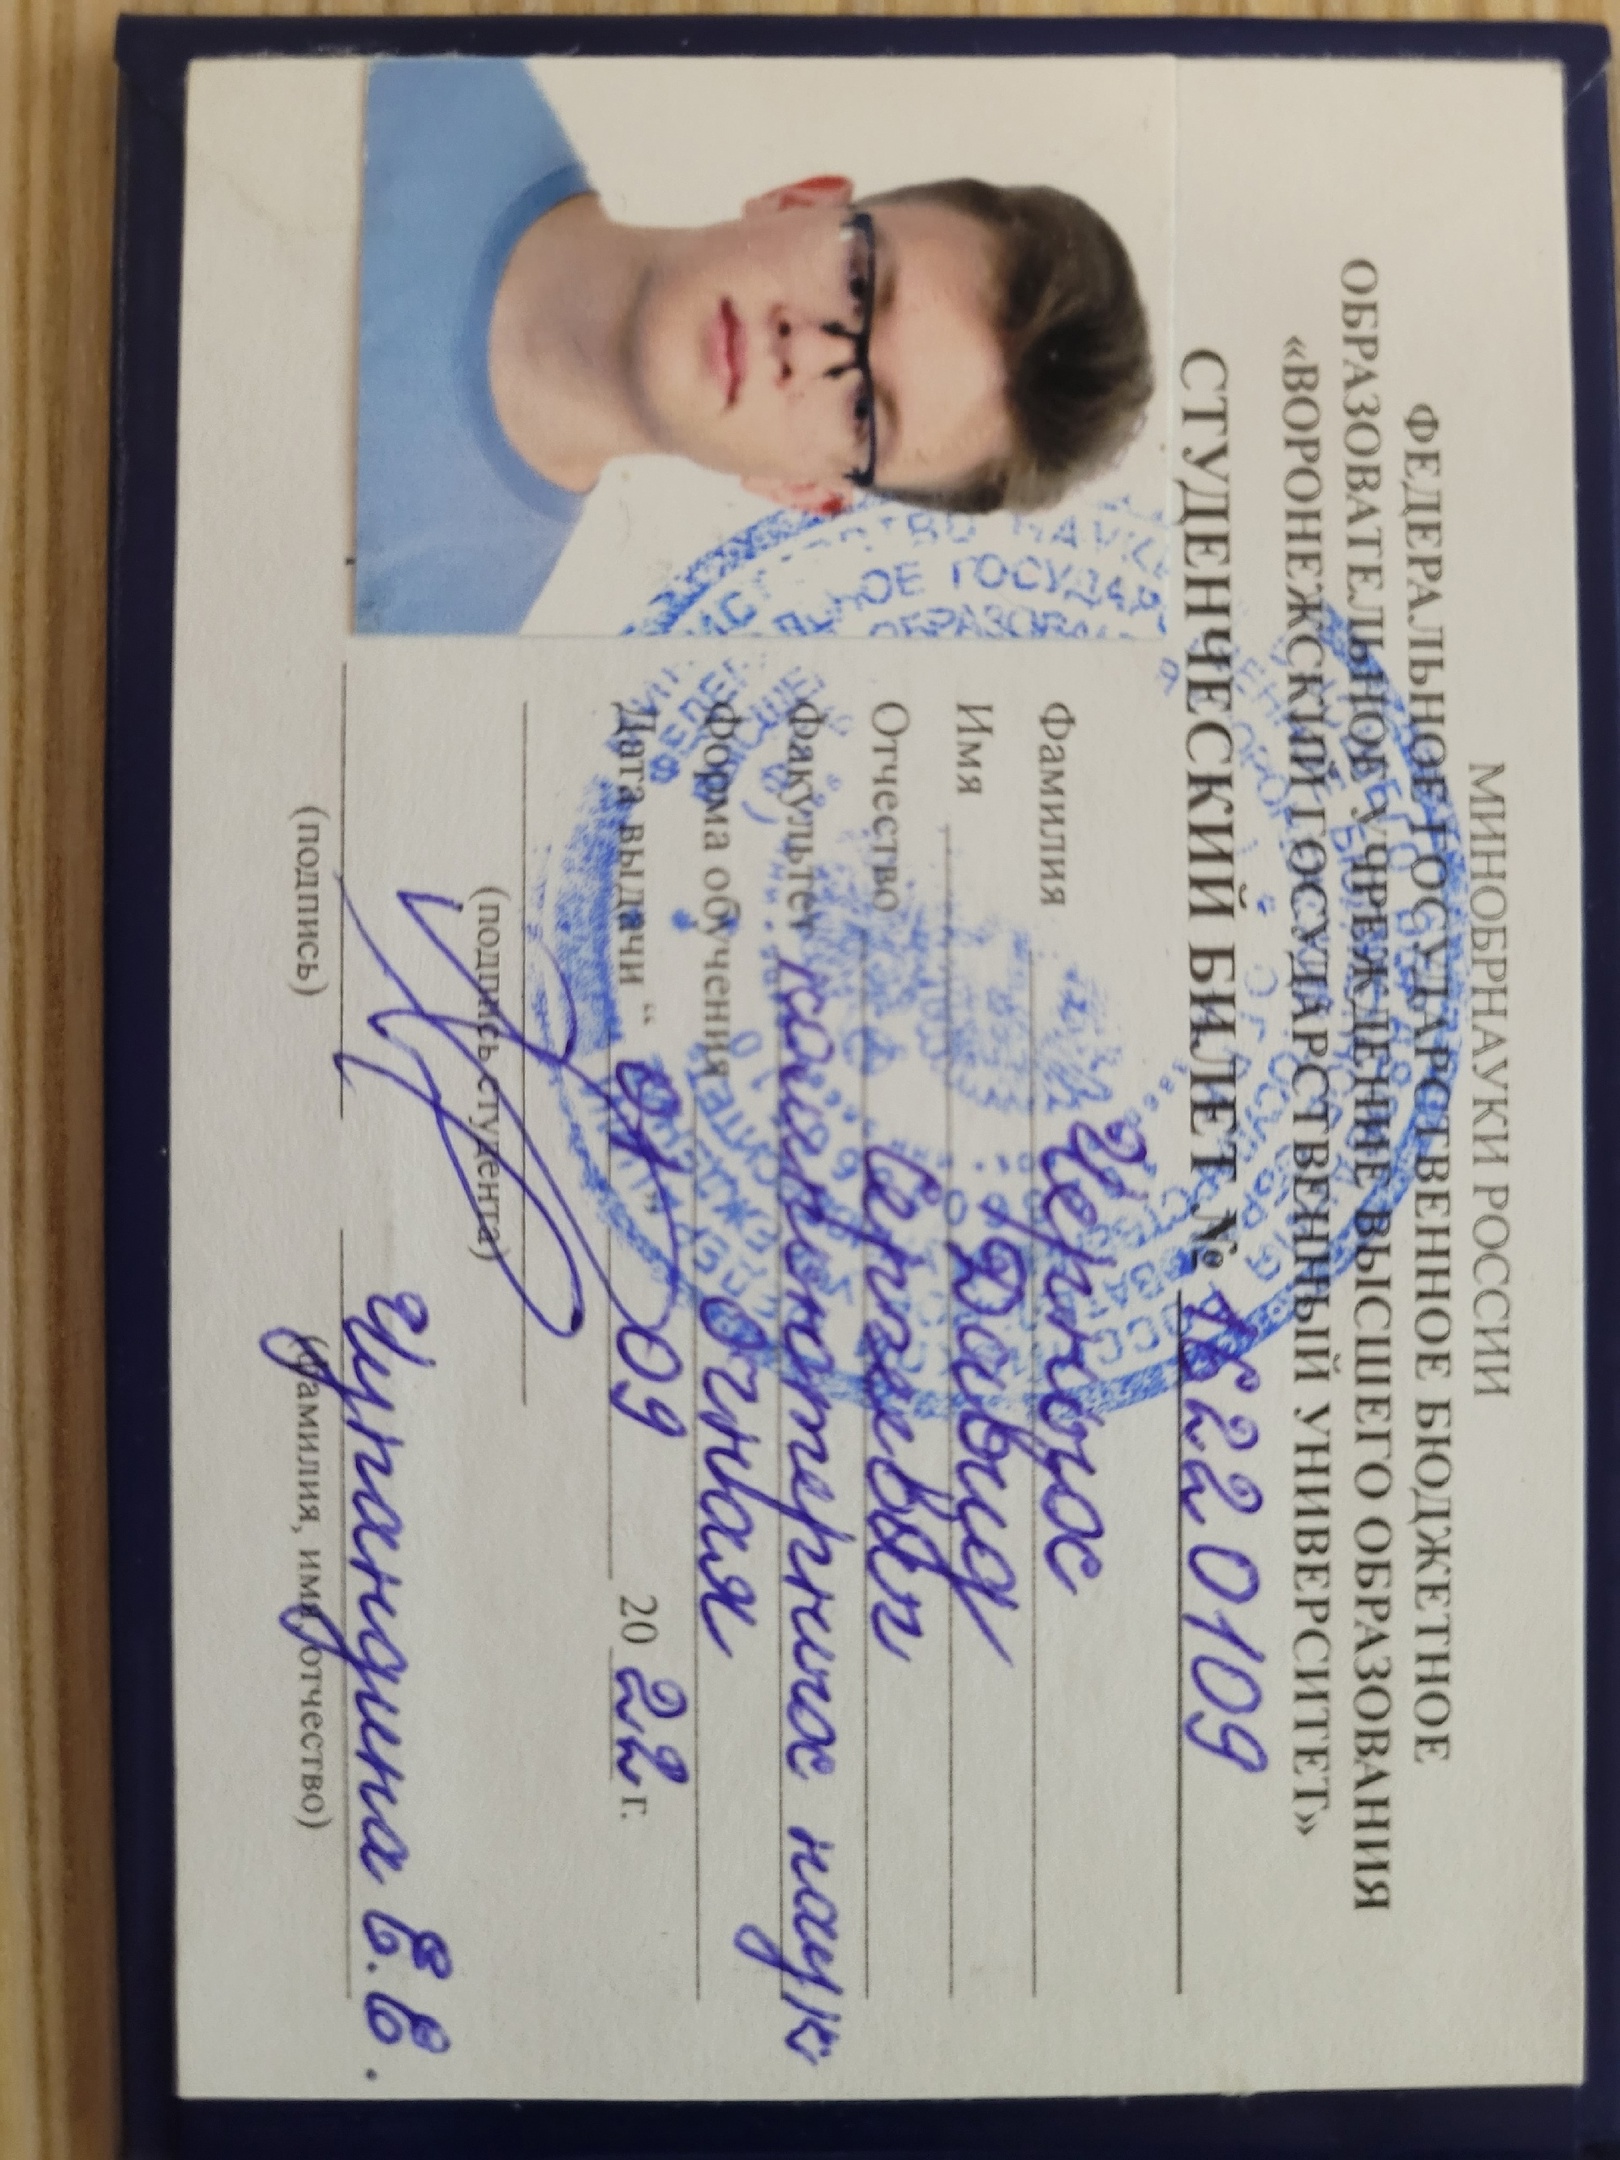 МИНОБРНАУКИ РОССИИ
ФЕДЕРАЛЬНОЕ ГОСУДАРСТВЕННОЕ БЮДЖЕТНОЕ
ОБРАЗОВАТЕЛЬНОЕ УЧРЕЖДЕНИЕ ВЫСШЕГО ОБРАЗОВАНИЯ
«ВОРОНЕЖСКИЙ ГОСУДАРСТВЕННЫЙ УНИВЕРСИТЕТ»
СТУДЕНЧЕСКИЙ БИЛЕТ № 16220109
Фамилия
Имя Давид
Отчество Сергеевич
Факультет компьютерных наук
Форма обучения очная
Дата выдачи “ 01 ” 09 2022 г.
(подпись студента)
Чупандина Е.Е.
(подпись) (фамилия, имя, отчество)